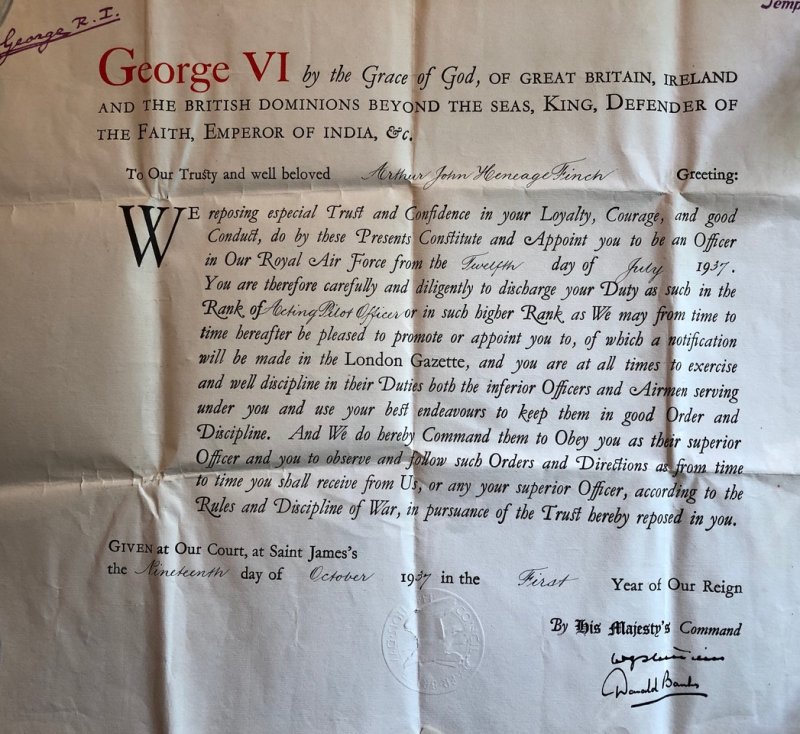 George R. I.
Temp
George VI by the Grace of God, OF GREAT BRITAIN, IRELAND
AND THE BRITISH DOMINIONS BEYOND THE SEAS, KING, DEFENDER OF
THE FAITH, EMPEROR OF INDIA, &c.
To Our Trusty and well beloved Arthur John Heneage Finch Greeting:
WE reposing especial Trust and Confidence in your Loyalty, Courage, and good
Conduct, do by these Presents Constitute and Appoint you to be an Officer
in Our Royal Air Force from the Twelfth day of July 1937.
You are therefore carefully and diligently to discharge your Duty as such in the
Rank of Acting Pilot Officer or in such higher Rank as We may from time to
time hereafter be pleased to promote or appoint you to, of which a notification
will be made in the London Gazette, and you are at all times to exercise
and well discipline in their Duties both the inferior Officers and Airmen serving
under you and use your best endeavours to keep them in good Order and
Discipline. And We do hereby Command them to Obey you as their superior
Officer and you to observe and follow such Orders and Directions as from time
to time you shall receive from Us, or any your superior Officer, according to the
Rules and Discipline of War, in pursuance of the Trust hereby reposed in you.
GIVEN at Our Court, at Saint James's
the Nineteenth day of October 1937 in the First Year of Our Reign
By His Majesty's Command
Donald Banks